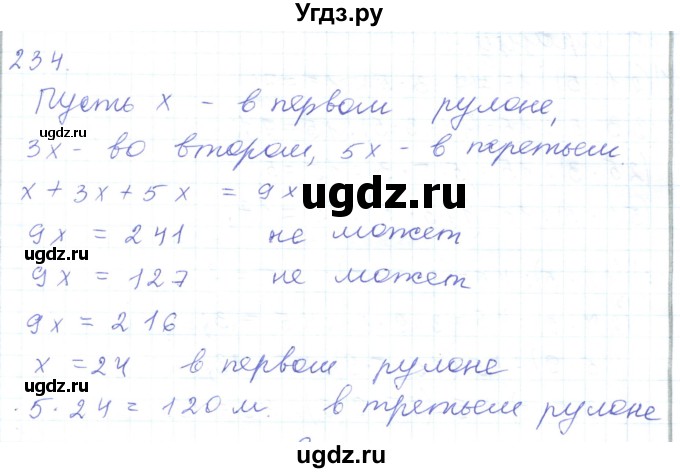 Угдз.ру
234.
Пусть x - в первом рулоне,
ugdz.ru
3x - во втором, 5x - в третьем.
x + 3x + 5x = 9x
ugdz.ru
9x = 241 не может
ugdz.ru
9x = 127 не может
ugdz.ru
9x = 216
x = 24 в первом рулоне
ugdz.ru
5 · 24 = 120 м. в третьем рулоне